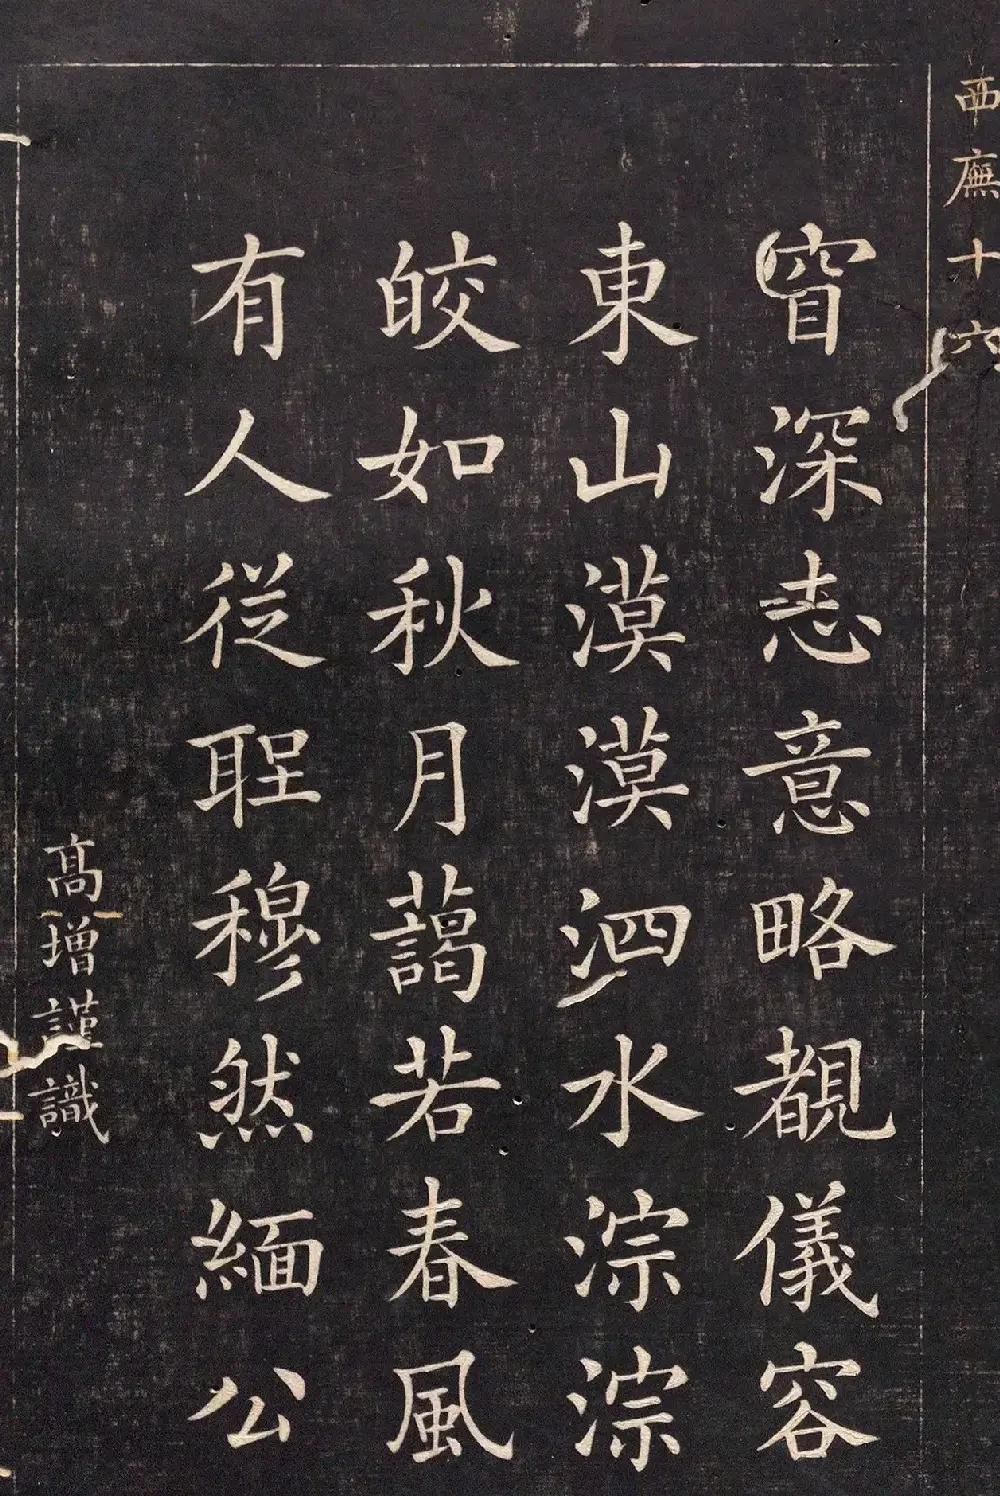 西廡十六
窅深志意略覩儀容
東山漠漠泗水淙淙
皎如秋月藹若春風
有人從聖穆然緬公
高增謹識